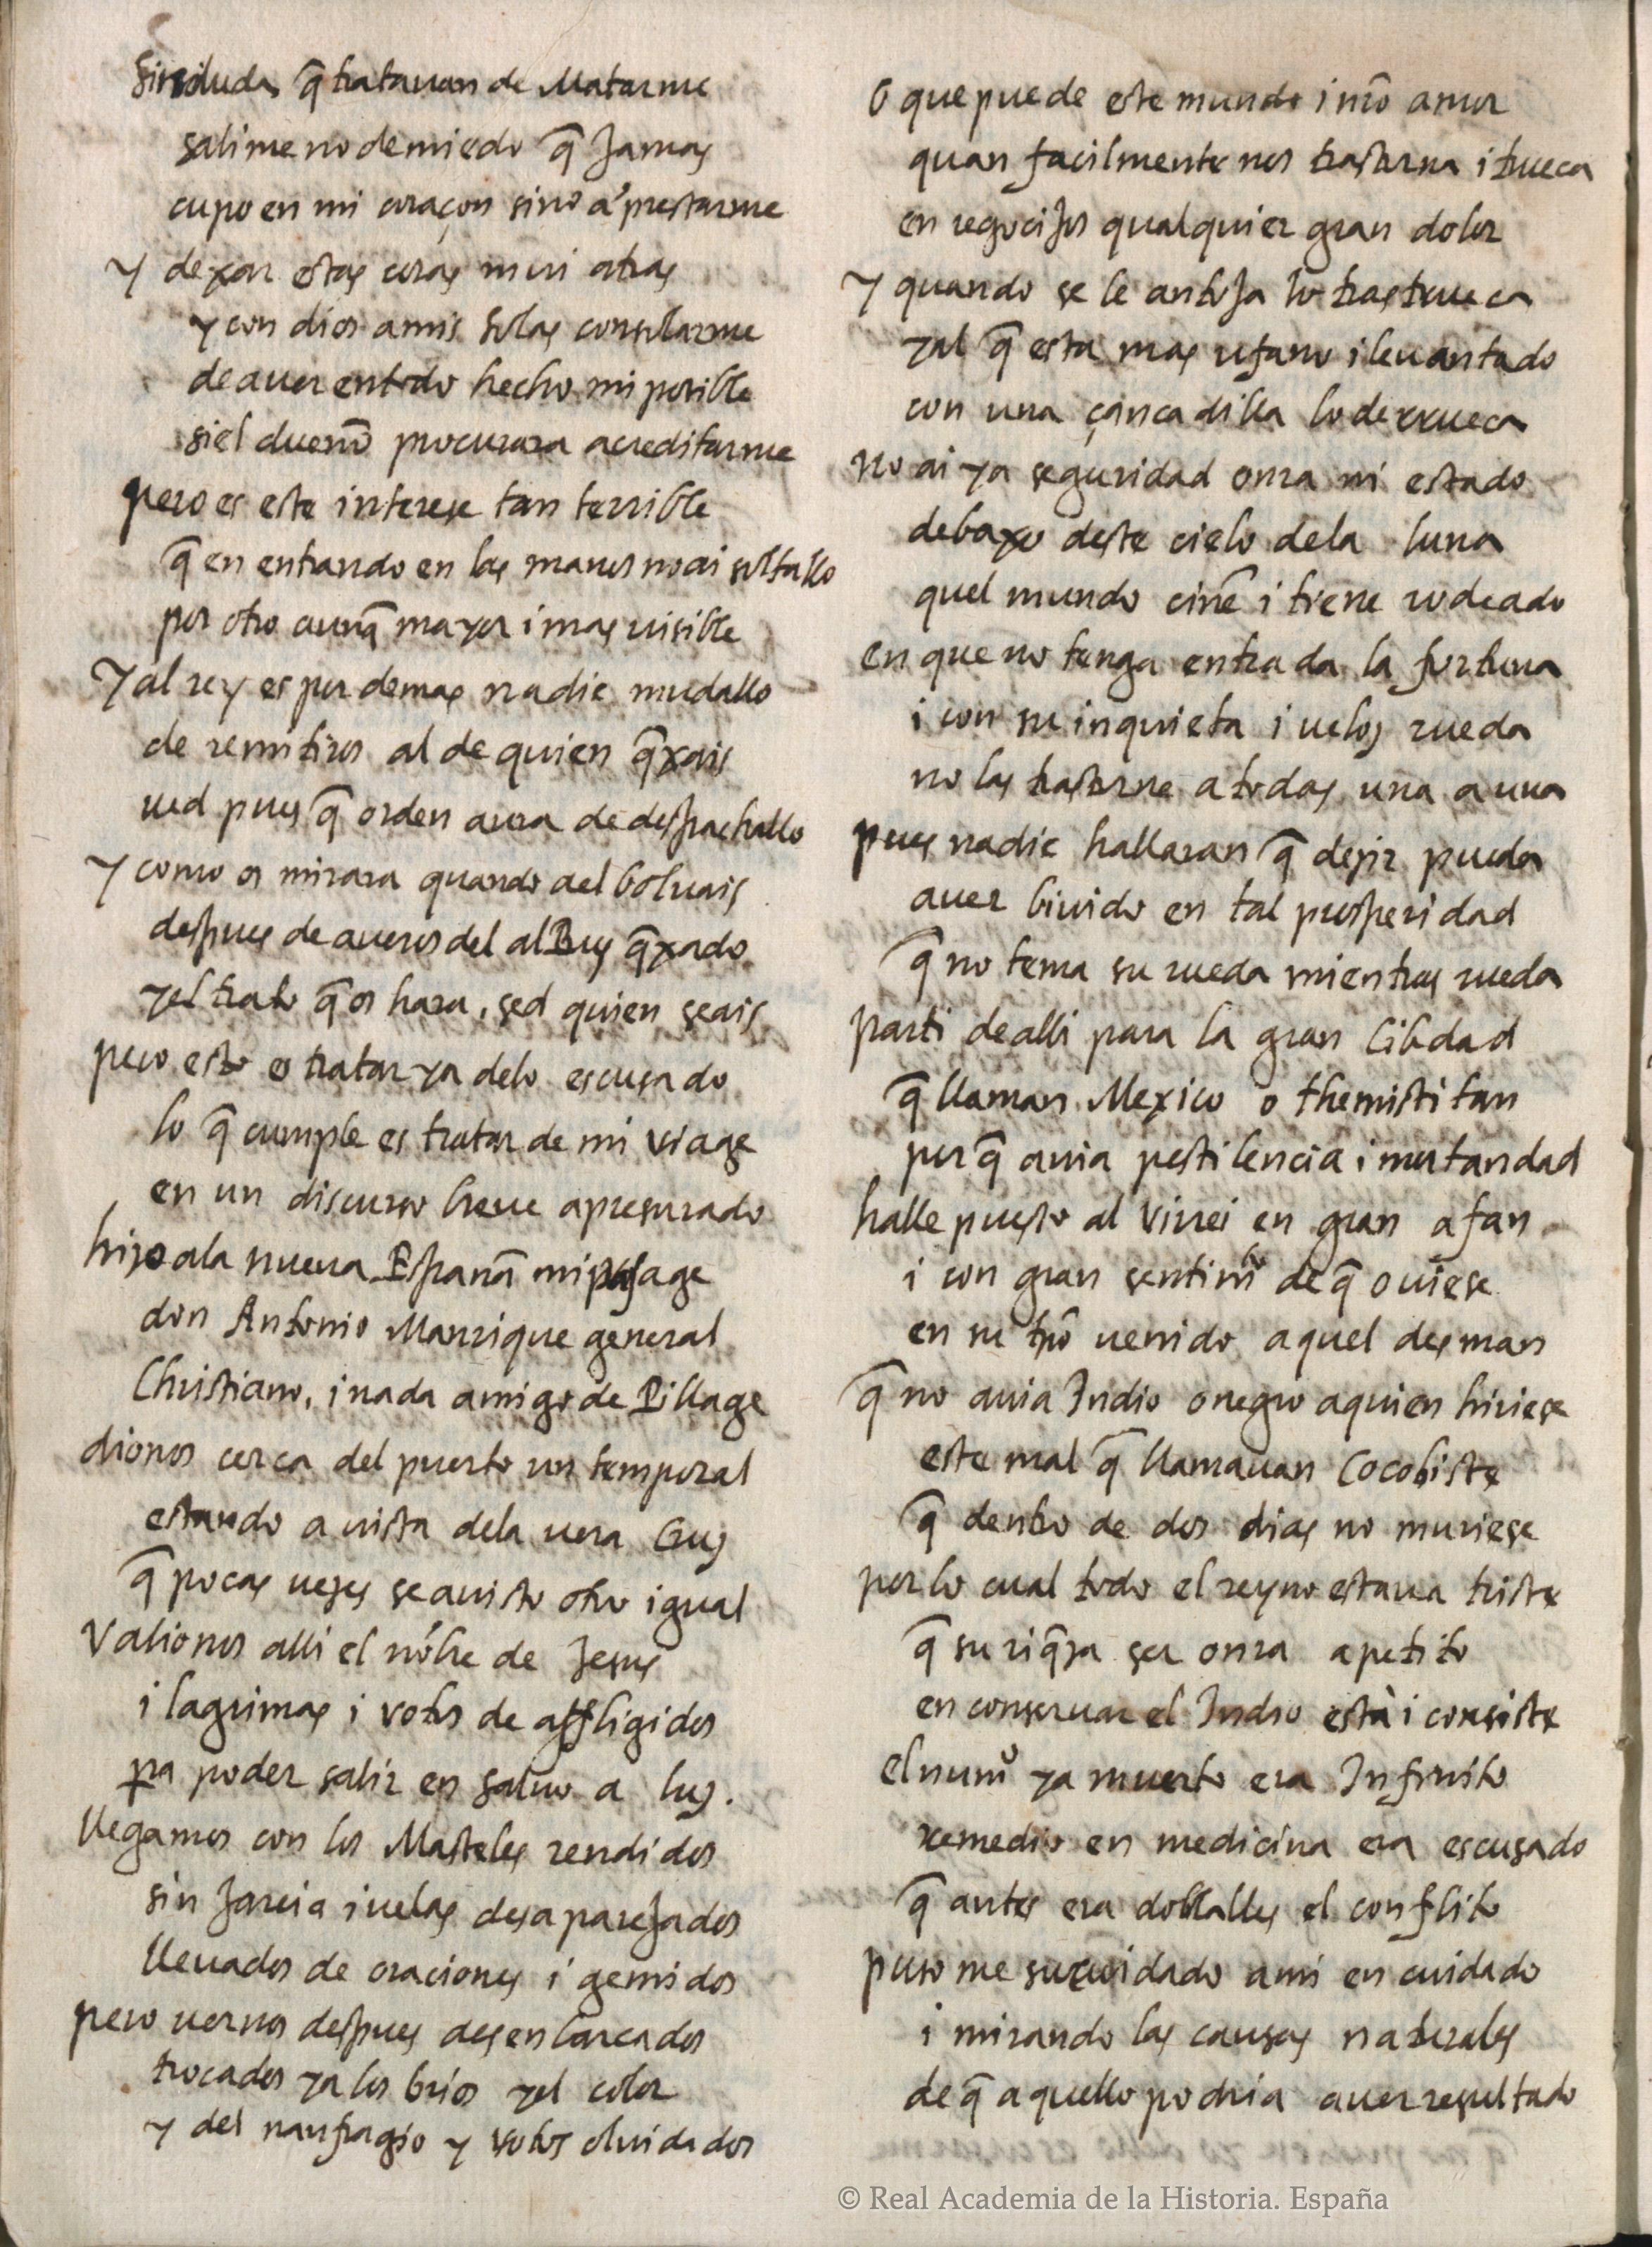 sin duda q̃ tratauan de Matarme
salime no de miedo q̃ Jamas
cupo en mi coraçon sino a prestarme
Y dexar estas cosas mui atras
y con dios a mis solas consolarme
de auer en todo hecho mi posible
si el dueño procurara acreditarme
pero es este interese tan terrible
q̃ en entrando en las manos no ai soltallo
por otro aunq̃ mayor i mas uisible
Y al rey es por demas nadie mudallo
de remitiros al de quien q̃xais
ued pues q̃ orden aura de despachallo
Y como os mirara quando a el boluais
despues de aueros del al Rey q̃xado
y el trato q̃ os hara, sed quien seais
pero esto es tratar ya de lo escusado
lo q̃ cumple es tratar de mi viage
en un discurso breue apresurado
hizo a la nueua España mi pasage
don Antonio Manrique general
Christiano, i nada amigo de Pillage
dionos cerca del puerto un temporal
estando a uista de la uera Cruz
q̃ pocas uezes se a uisto otro igual
Valionos alli el nõbre de Jesus
i lagrimas i votos de affligidos
pa poder salir en saluo a luz.
llegamos con los Masteles rendidos
sin Jarcia i uelas desaparejados
lleuados de oraciones i gemidos
pero uernos despues desenbarcados
trocados ya los brios y el color
y del naufragio y votos oluidados
O que puede este mundo i nr̃o amor
quan facilmente nos trastorna i trueca
en regocijos qualquier gran dolor
Y quando se le antoja lo trastrueca
y al q̃ esta mas ufano i leuantado
con una çancadilla lo derrueca
no ai ya seguridad onra ni estado
debaxo deste cielo de la luna
quel mundo ciñe i tiene rodeado
en que no tenga entrada la fortuna
i con su inquieta i ueloz rueda
no las trastorne a todas una a una
pues nadie hallaran q̃ dezir pueda
auer biuido en tal prosperidad
q̃ no tema su rueda mientras rueda
parti de alli para la gran Cibdad
q̃ llaman Mexico o themistitan
por q̃ auia pestilencia i mortandad
halle puesto al Virrei en gran afan
i con gran sentimº de q̃ ouiese
en su tpõ uenido aquel desman
q̃ no auia Indio o negro a quien hiriese
este mal q̃ llamauan Cocobiste
q̃ dentro de dos dias no muriese
por lo cual todo el reyno estaua triste
q̃ su riq̃za ser onra apetito
en conseruar el Indio està i consiste
el numº ya muerto era Infinito
remedio en medicina era escusado
q̃ antes era doblalles el conflito
puso me su cuidado a mi en cuidado
i mirando las causas naturales
de q̃ aquello podria auer resultado
© Real Academia de la Historia. España